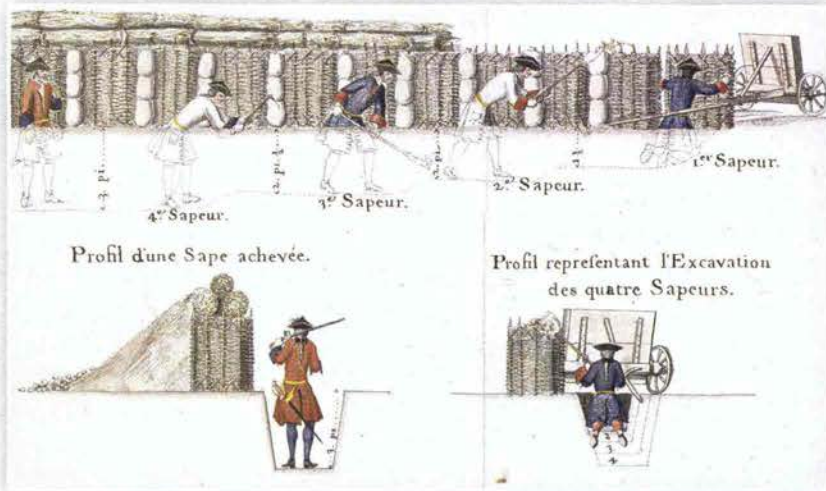 1.er Sapeur.
2.e Sapeur.
3.e Sapeur.
4.e Sapeur.
Profil d'une Sape achevée.
Profil representant l'Excavation
des quatre Sapeurs.
2
3
4